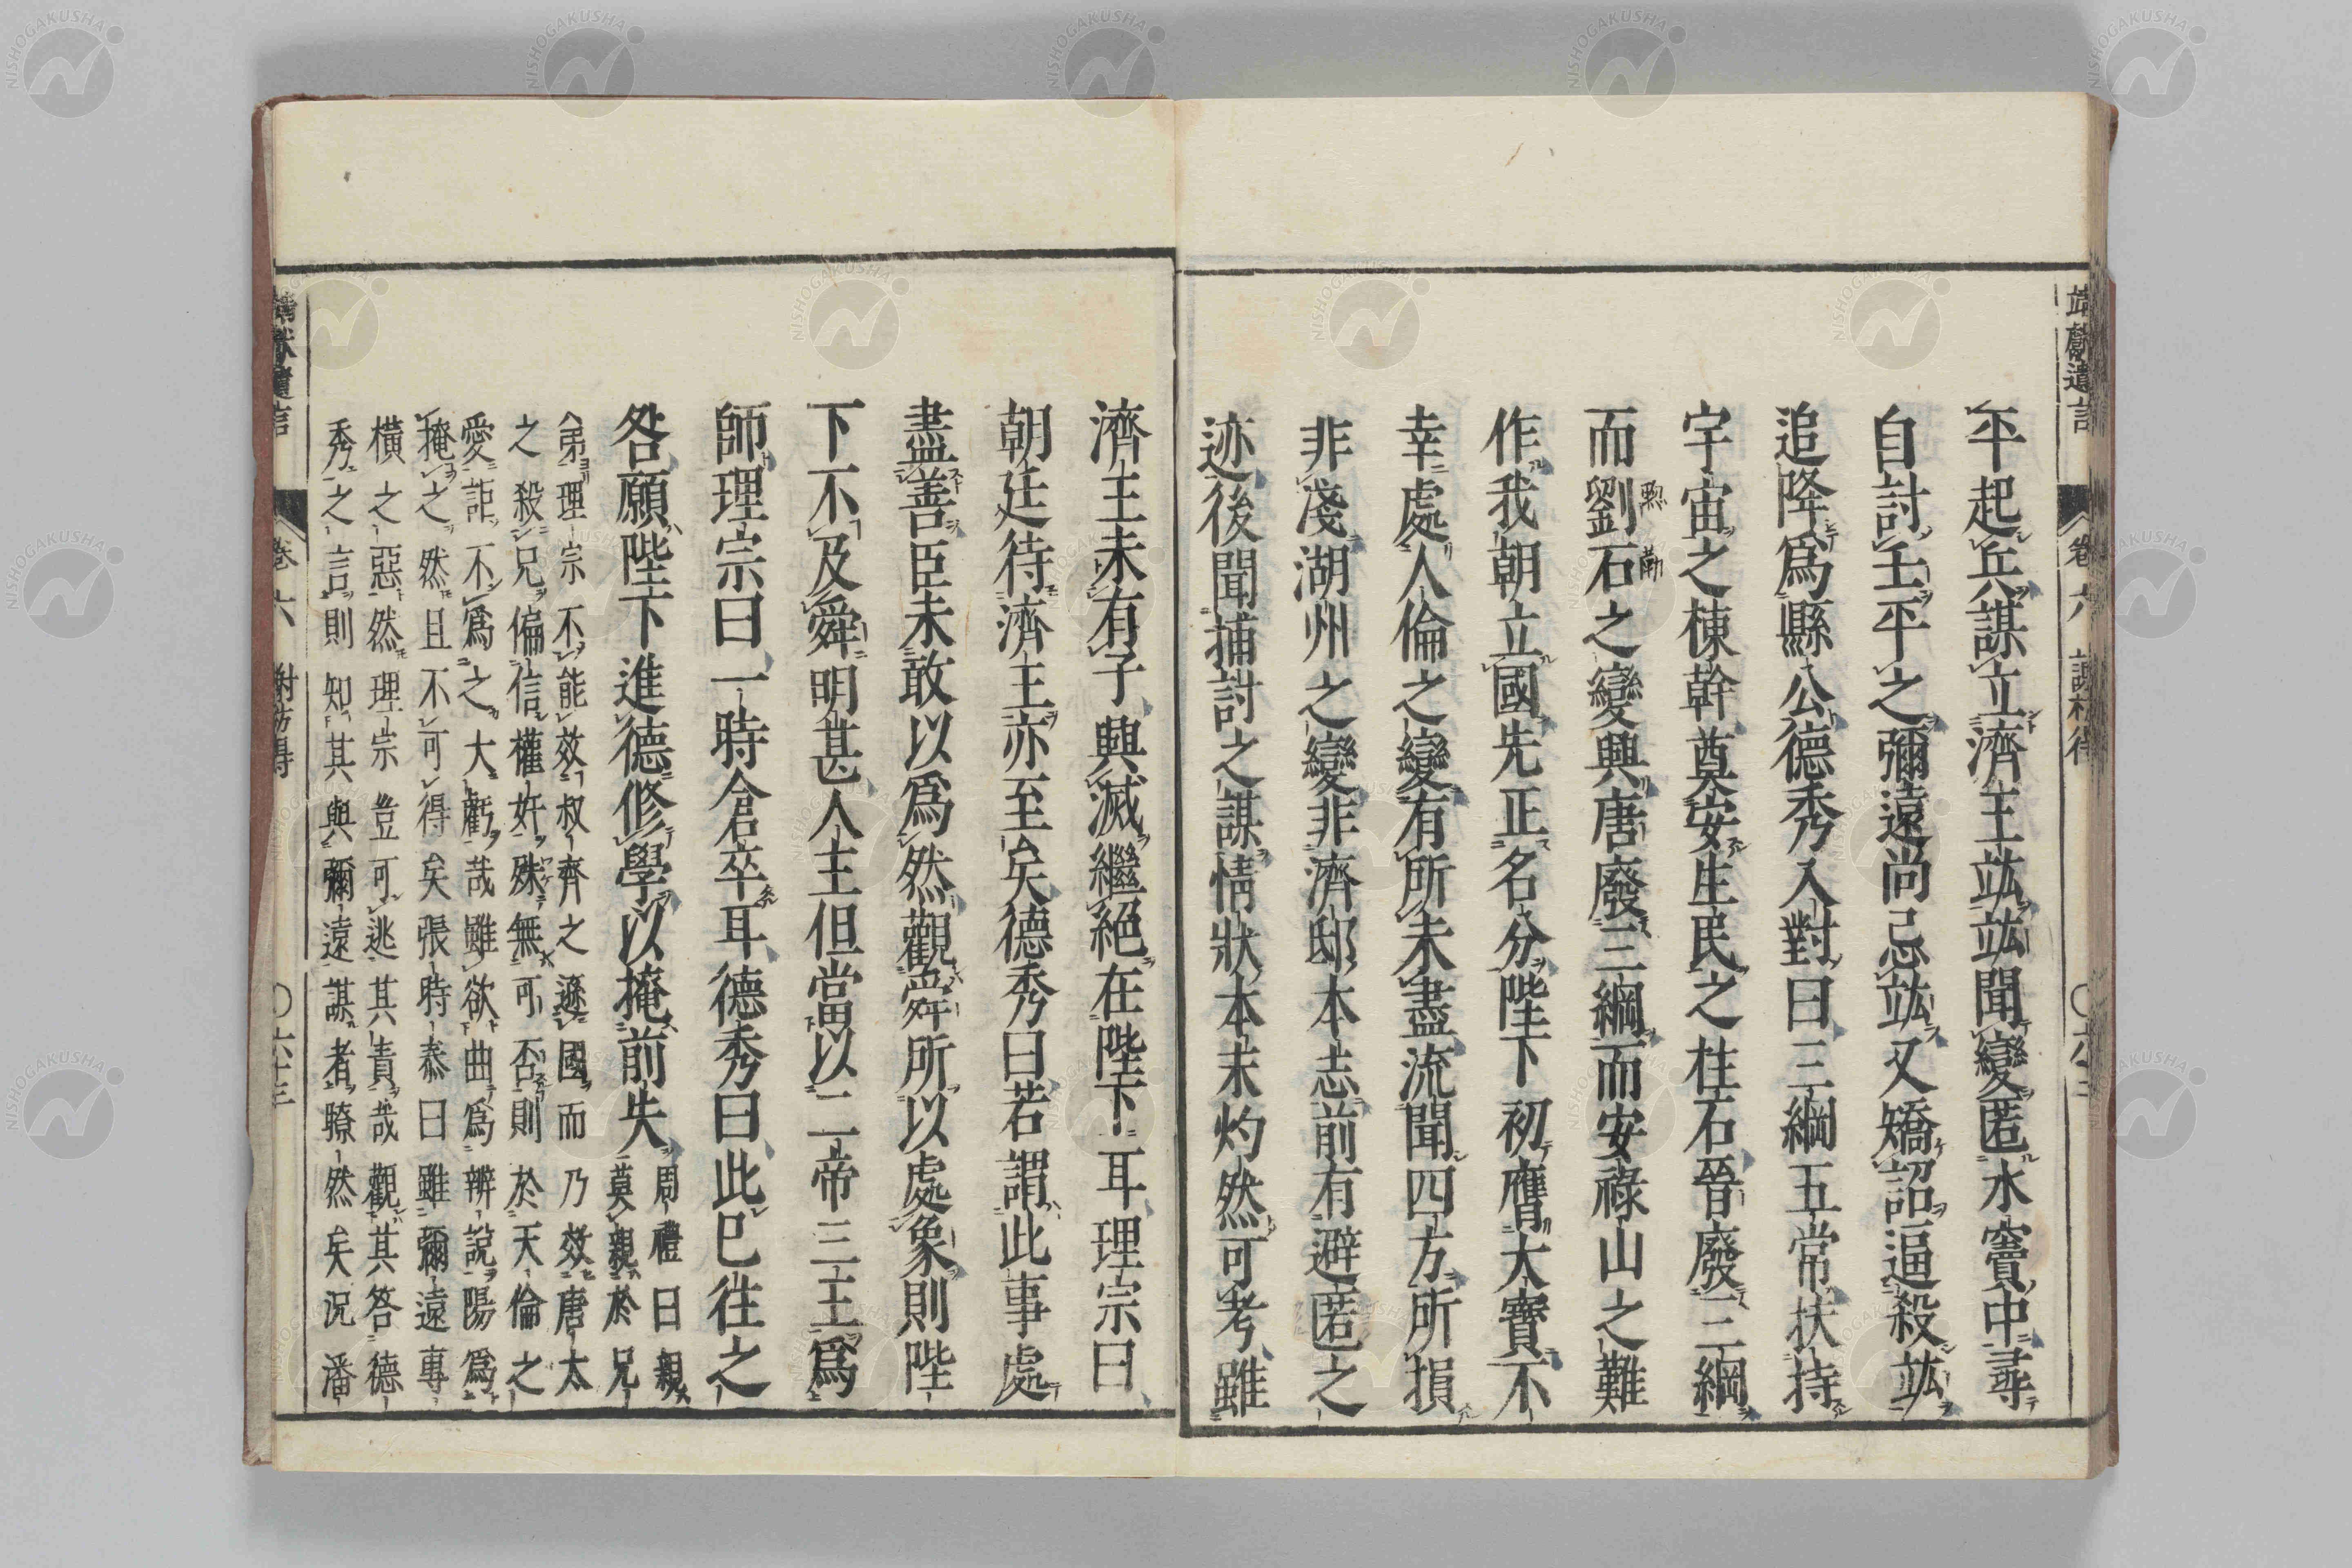 靖獻遺言 卷六 謝枋得 〇六十三
平起兵謀立濟王竑竑聞變匿水竇中尋
自討壬平之彌遠尚忌竑又矯詔逼殺竑
追降爲縣公德秀入對曰三綱五常扶持
宇宙之棟幹奠安生民之柱石晉廢三綱
而劉石之變興唐廢三綱而安祿山之難
聰 勒
作我朝立國先正名分陛下初膺大寶不
幸處人倫之變有所未盡流聞四方所損
非淺湖州之變非濟邸本志前有避匿之
迹後聞捕討之謀情狀本末灼然可考雖
濟王未有子興滅繼絕在陛下耳理宗曰
朝廷待濟王亦至矣德秀曰若謂此事處
盡善臣未敢以爲然觀舜所以處象則陛
下不及舜明甚人主但當以二帝三王爲
師理宗曰一時倉卒耳德秀曰此已往之
咎願陛下進德修學以掩前失
周禮曰親
莫親於兄
弟理宗不能效叔齊之遜國而乃效唐太
之殺兄偏信權奸殊無可否則於天倫之
愛詎不爲之大虧哉雖欲曲爲辨說陽爲
掩之然且不可得矣張時泰曰雖彌遠專
橫之惡然理宗豈可逃其責哉觀其答德
秀之言則知其與彌遠謀者瞭然矣況潘
靖獻遺言 卷六 謝枋得 〇六十三
NISHOGAKUSHA